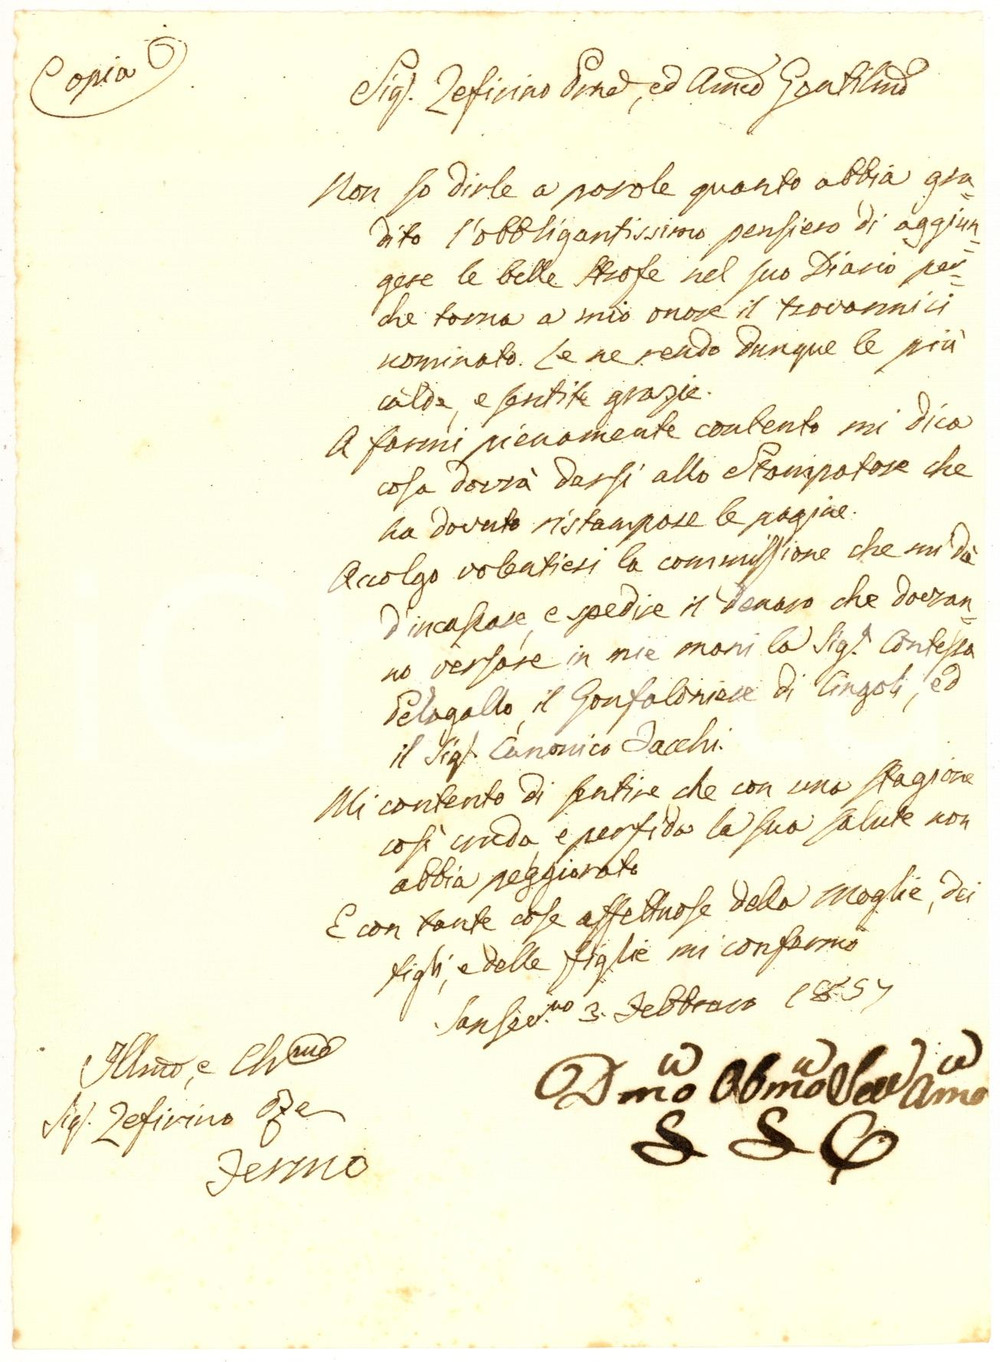 Copia
Sig.r Zefirino Prnē, ed Amco Gentilmō
Non so dirle a parole quanto abbia gra=
dito l'obbligantissimo pensiero di aggiun=
gere le belle strofe nel suo Diario per=
che torna a mio onore il trovarmici
nominato. Le ne rendo dunque le più
calde, e sentite grazie.
A farmi pienamente contento mi dica
cosa dovrà darsi allo Stampatore che
ha dovuto ristampare le pagine.
Accolgo volentieri la commissione che mi dà
d'incassare, e spedire il denaro che dovran=
no versare in mie mani la Sig.ra Contessa
Pelagallo, il Gonfaloniere di Cingoli, ed
il Sig.r Canonico Tacchi.
Mi contento di sentire che con una stagione
così cruda, e perfida la sua salute non
abbia peggiorato
E con tante cose affettuose della Moglie, dei
figli, e delle figlie mi confermo
Sansev.no 3. Febbraro 1857
Illmō, e Chmō
Sig.r Zefirino
Fermo
Dmō Obmō Serv Amō
S S C